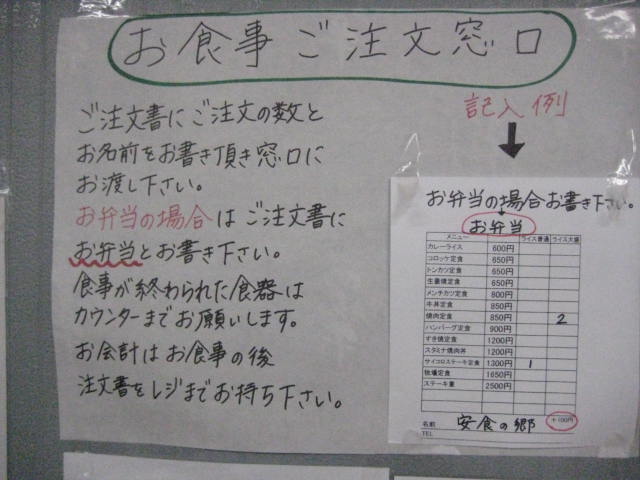 お食事ご注文窓口
ご注文書にご注文の数と
お名前をお書き頂き窓口に
お渡し下さい。
お弁当の場合はご注文書に
お弁当とお書き下さい。
食事が終わられた食器は
カウンターまでお願いします。
お会計はお食事の後
注文書をレジまでお持ち下さい。
記入例
お弁当の場合お書き下さい。
お弁当
メニュー ライス普通 ライス大盛
カレーライス 600円
コロッケ定食 650円
トンカツ定食 650円
生姜焼定食 650円
メンチカツ定食 800円
牛丼定食 850円
焼肉定食 850円 2
ハンバーグ定食 900円
すき焼定食 1200円
スタミナ焼肉丼 1200円
サイコロステーキ定食 1300円 1
牧場定食 1650円
ステーキ重 2500円
+100円
名前 安食の郷
TEL